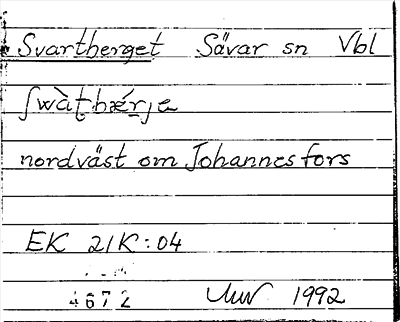 Svartberget Sävar sn Vbl
ʃwàʈbǽrje
nordväst om Johannesfors
EK 21K:04
4672 1992